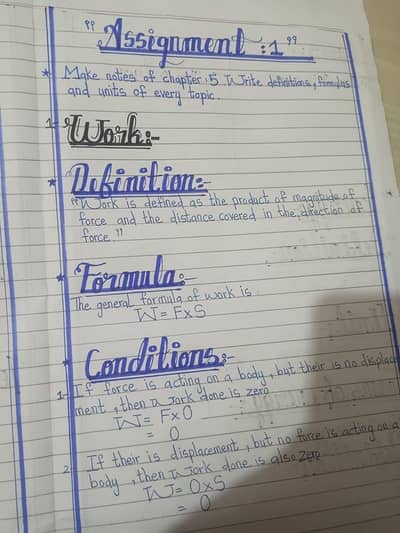 "Assignment :1"
* Make notes of chapter:5. Write definitions, formulas
and units of every topic.
1- Work:-
* Definition:-
"Work is defined as the product of magnitude of
force and the distance covered in the direction of
force."
* Formula:-
The general formula of work is
W = F×S
* Conditions:-
1- If force is acting on a body, but their is no displace
ment, then work done is zero
W = F×0
= 0
2- If their is displacement, but no force is acting on a
body, then work done is also zero
W = 0×S
= 0